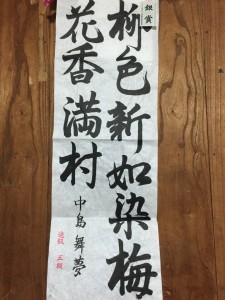 銀賞
柳色新如染梅
花香満村
中島舞夢
進級 三級